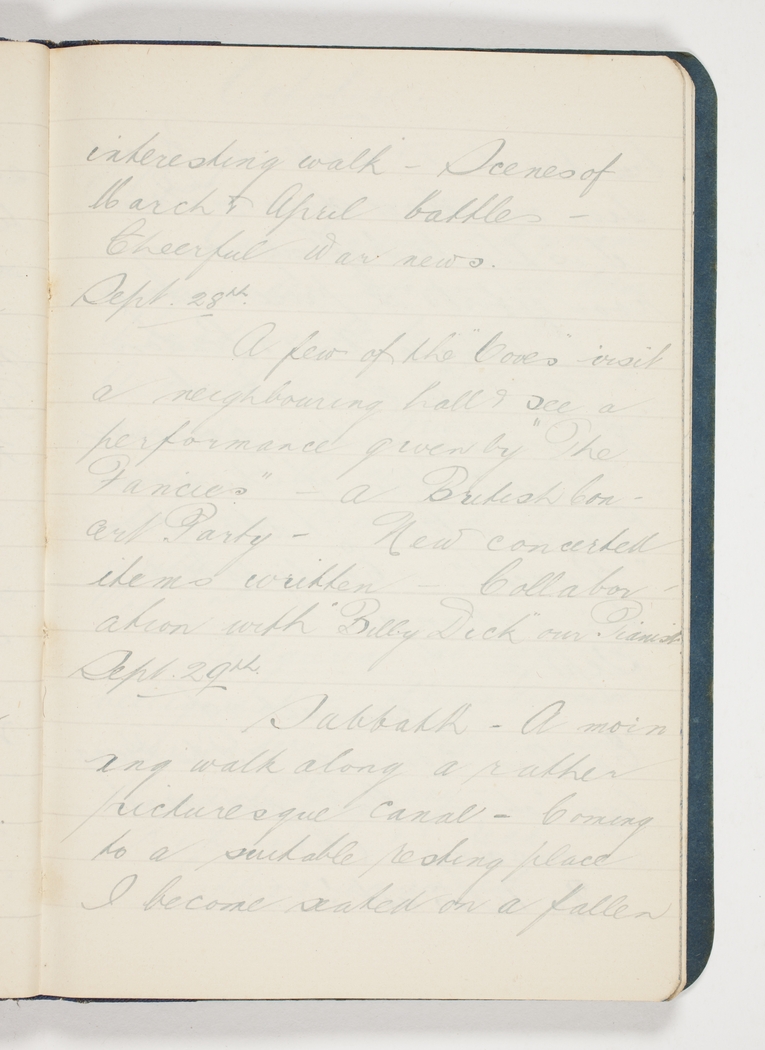 interesting walk - Scenes of
March & April battles -
Cheerful War news.
Sept. 28th.
A few of the "Coves" visit
a neighbouring hall & see a
performance given by "The
Fancies" - a British Con-
cert Party - New concerted
items written - Collabor-
ation with "Billy Dick" our Pianist
Sept. 29th.
Sabbath - A morn
ing walk along a rather
picturesque canal - Coming
to a suitable resting place
I become seated on a fallen